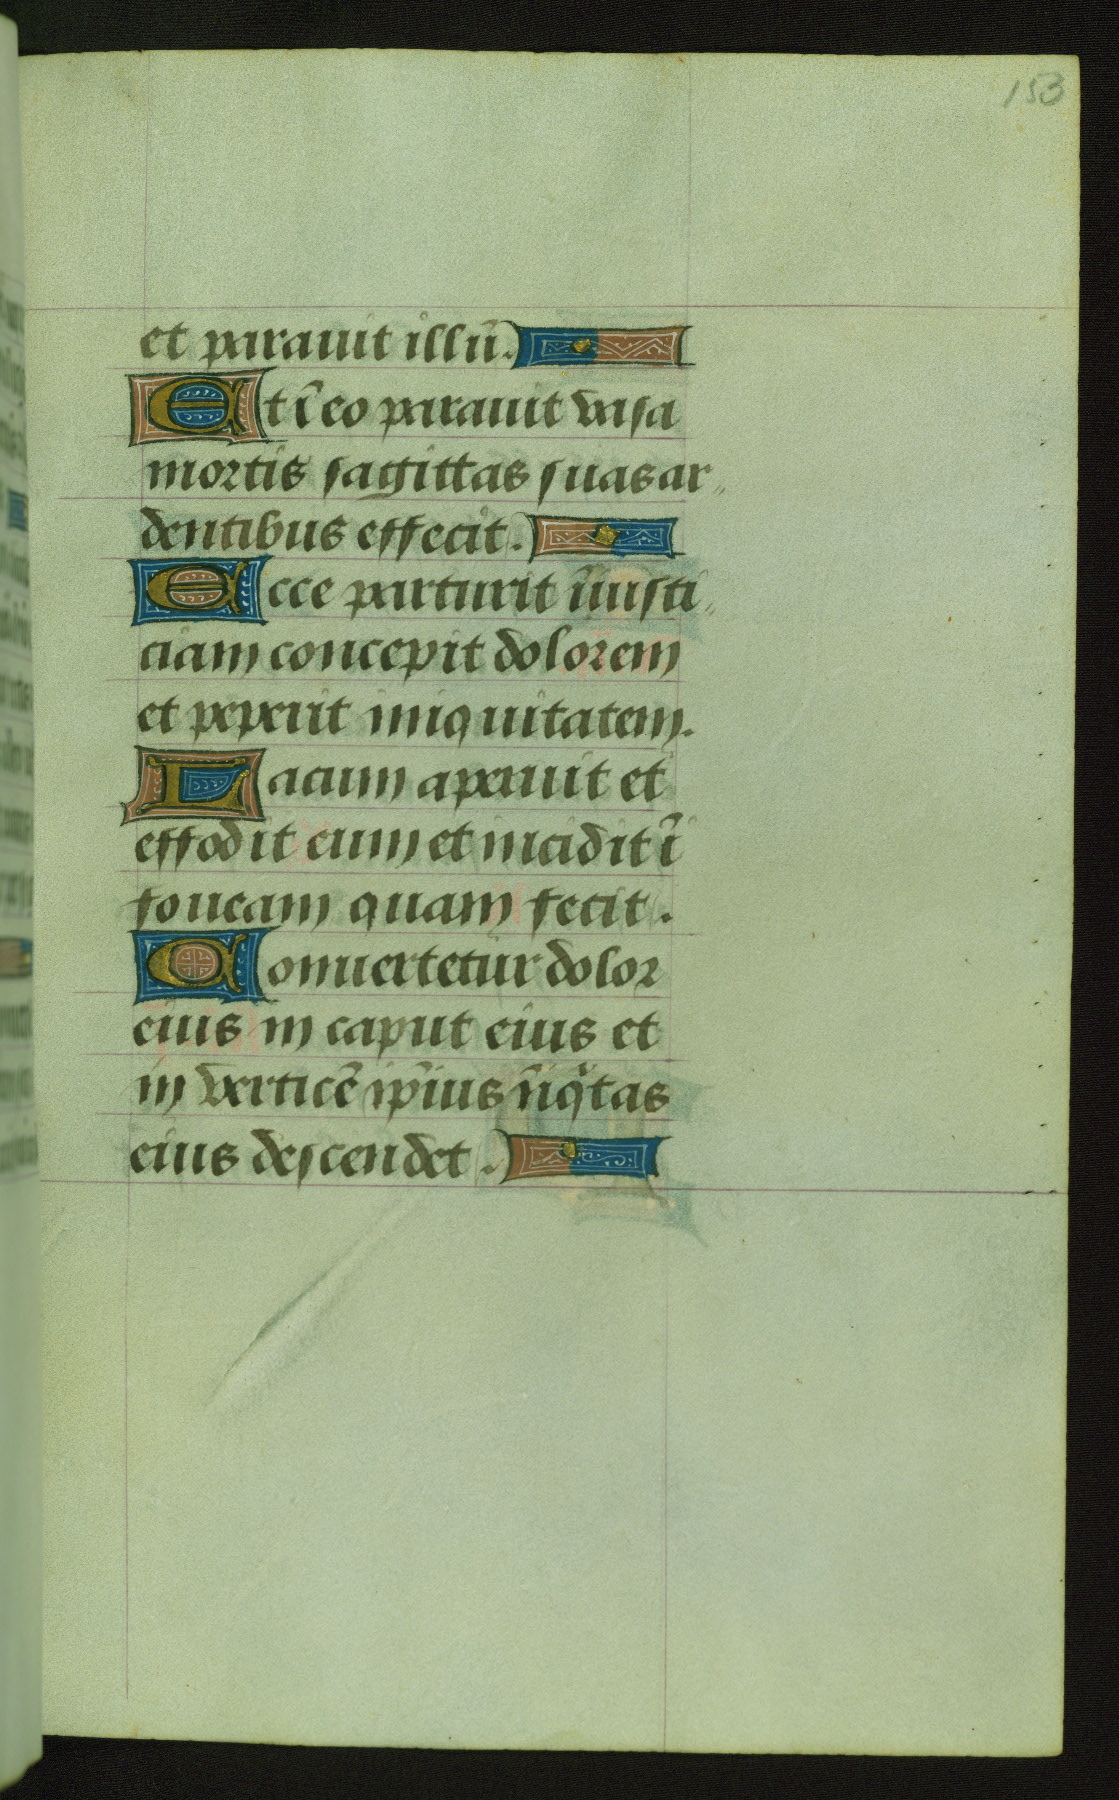 153
et parauit illū.
Et ī eo parauit vasa
mortis sagittas suas ar„
dentibus effecit.
Ecce parturit iniusti„
ciam concepit dolorem
et peperit iniquitatem.
Lacum aperuit et
effodit eum et incidit ī
foueam quam fecit.
Conuertetur dolor
eius in caput eius et
in verticē ip̄ius iniqͥtas
eius descendet.